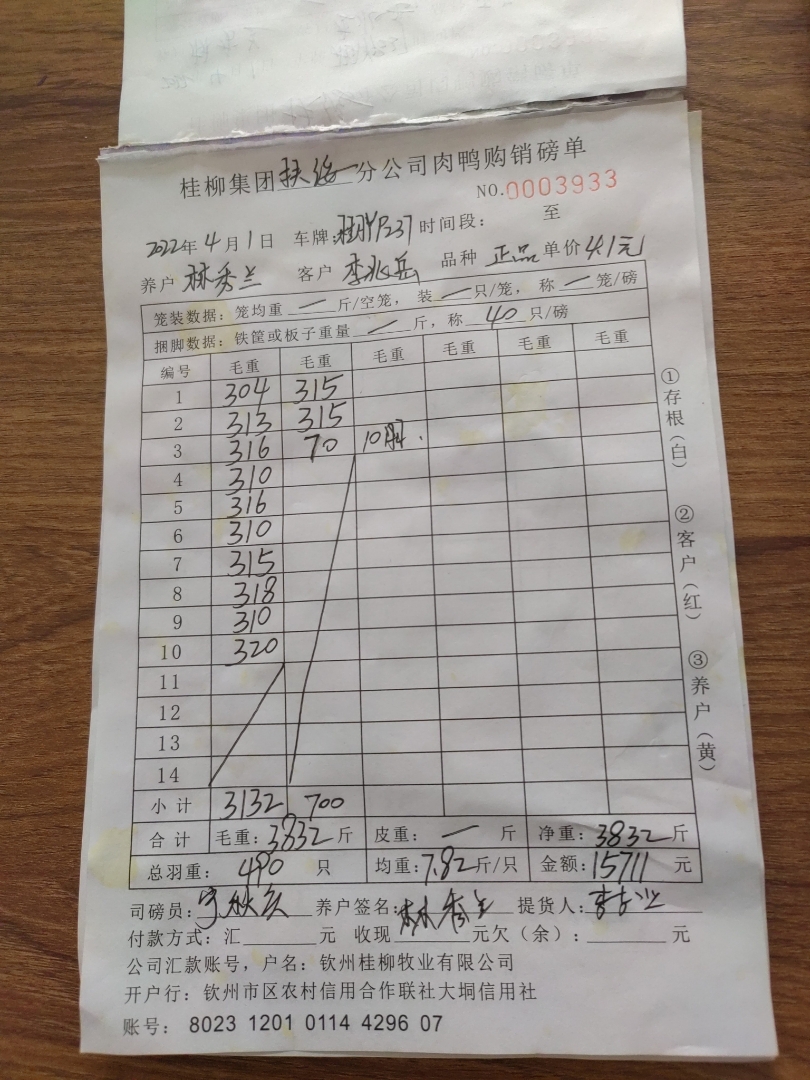 桂柳集团扶绥分公司肉鸭购销磅单
NO.0003933
2022年4月1日 车牌:桂 P237 时间段: 至
养户 林秀兰 客户 李兆岳 品种 正品 单价 4.1元
笼装数据: 笼均重 一 斤/空笼, 装 一 只/笼, 称 一 笼/磅
捆脚数据: 铁筐或板子重量 一 斤, 称 40 只/磅
编号 毛重 毛重 毛重 毛重 毛重 毛重
1 304 315
2 313 315
3 316 70 10
4 310
5 316
6 310
7 315
8 318
9 310
10 320
11
12
13
14
小计 3132 700
合计 毛重: 3832 斤 皮重: 一 斤 净重: 3832 斤
总羽重: 490 只 均重: 7.82 斤/只 金额: 15711 元
司磅员: 养户签名: 林秀兰 提货人: 李
付款方式: 汇 元 收现 元欠(余): 元
公司汇款账号, 户名: 钦州桂柳牧业有限公司
开户行: 钦州市区农村信用合作联社大垌信用社
账号: 8023 1201 0114 4296 07
①存根(白)
②客户(红)
③养户(黄)